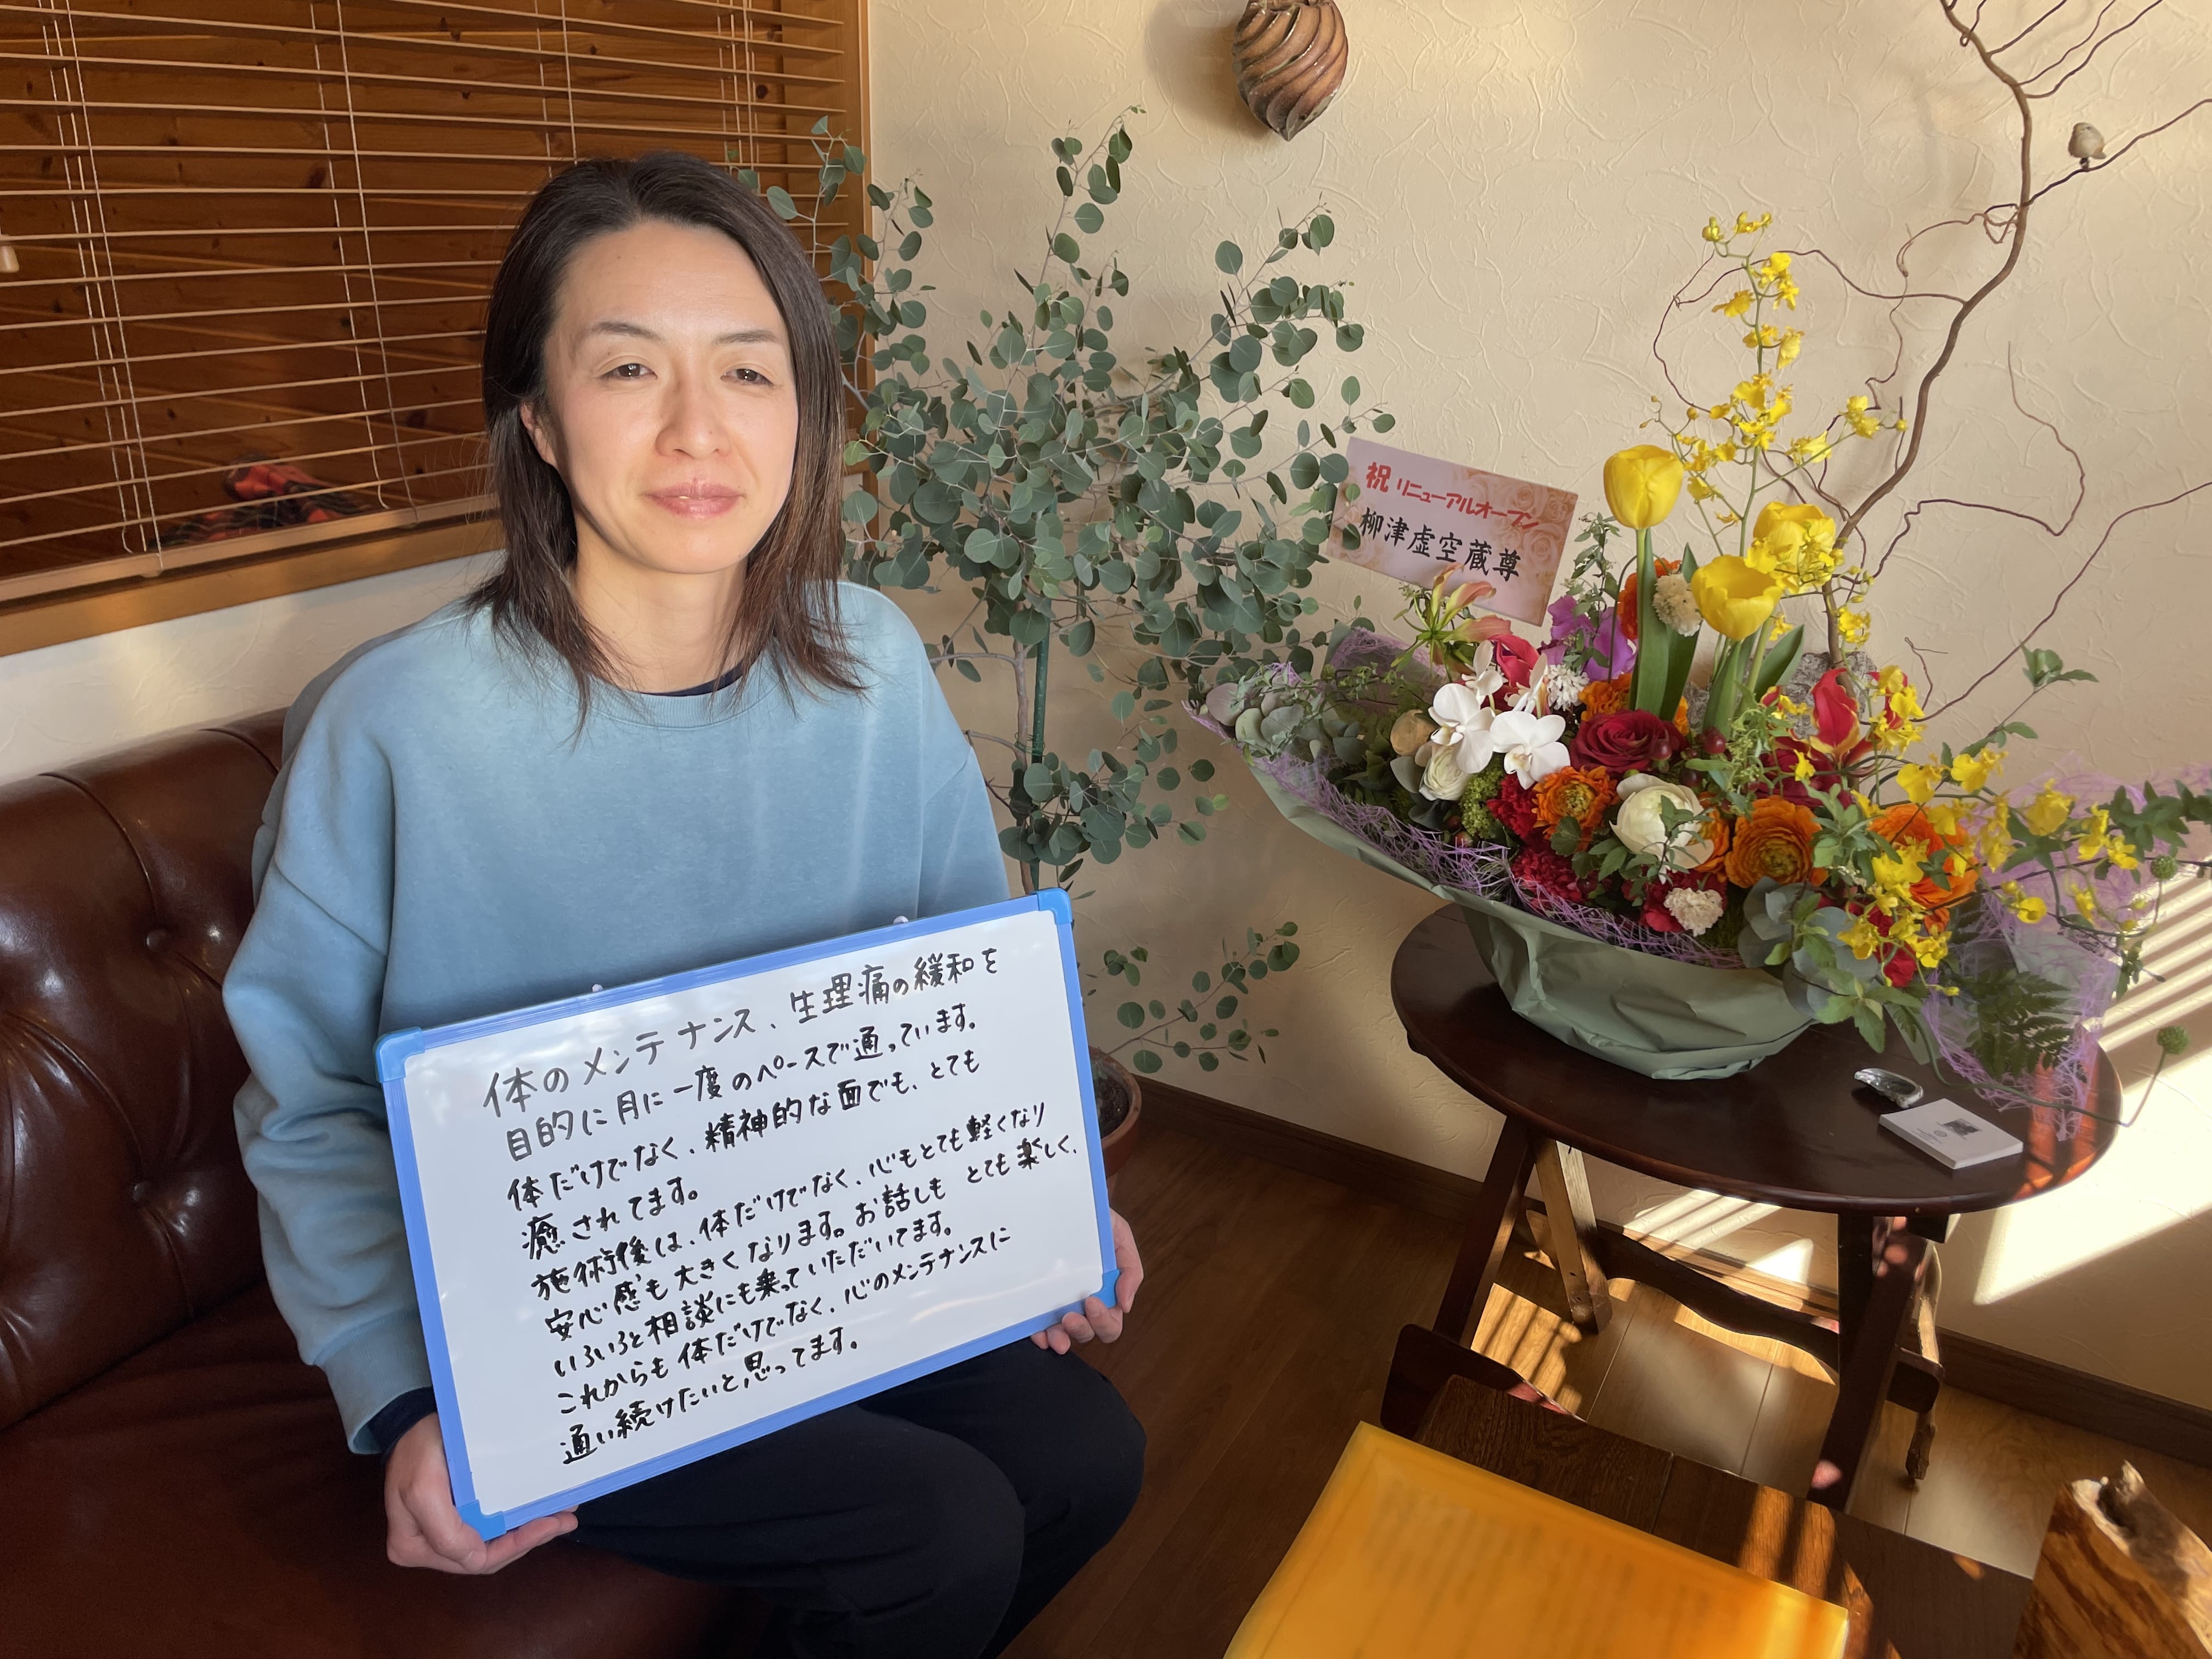 体のメンテナンス、生理痛の緩和を
目的に月に一度のペースで通っています。
体だけでなく、精神的な面でも、とても
癒されてます。
施術後は、体だけでなく、心もとても軽くなり
安心感も大きくなります。お話しも とても楽しく、
いろいろと相談にも乗っていただいてます。
これからも体だけでなく、心のメンテナンスに
通い続けたいと思ってます。
祝 リニューアルオープン
柳津虚空蔵尊